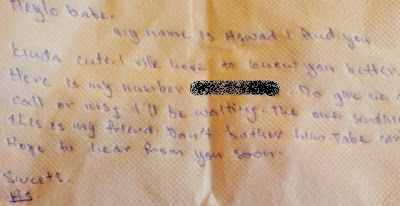 Heylo babe.
my name is Aswad. I find you
kinda cute. I will love to know you better.
Here is my number Do give me a
call or msg. I'll be waiting. The one sending
this is my friend. Don't bother him. Take care
Hope to hear from you soon.
Sweets.
As.